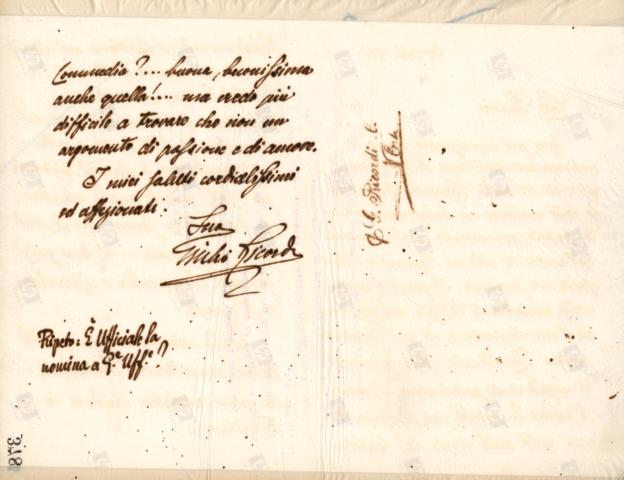 Commedia?... buona, buonissima
anche quella!... ma credo più
difficile a trovare che non un
argomento di passione e di amore.
I miei saluti cordialissimi
ed affezionati.
Suo
Giulio Ricordi
Ripeto: È Ufficiale la
nomina a G.e Uff.e!?
G. Ricordi &
378